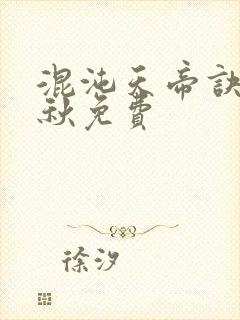 混沌天帝訣
秋免費
徐汐